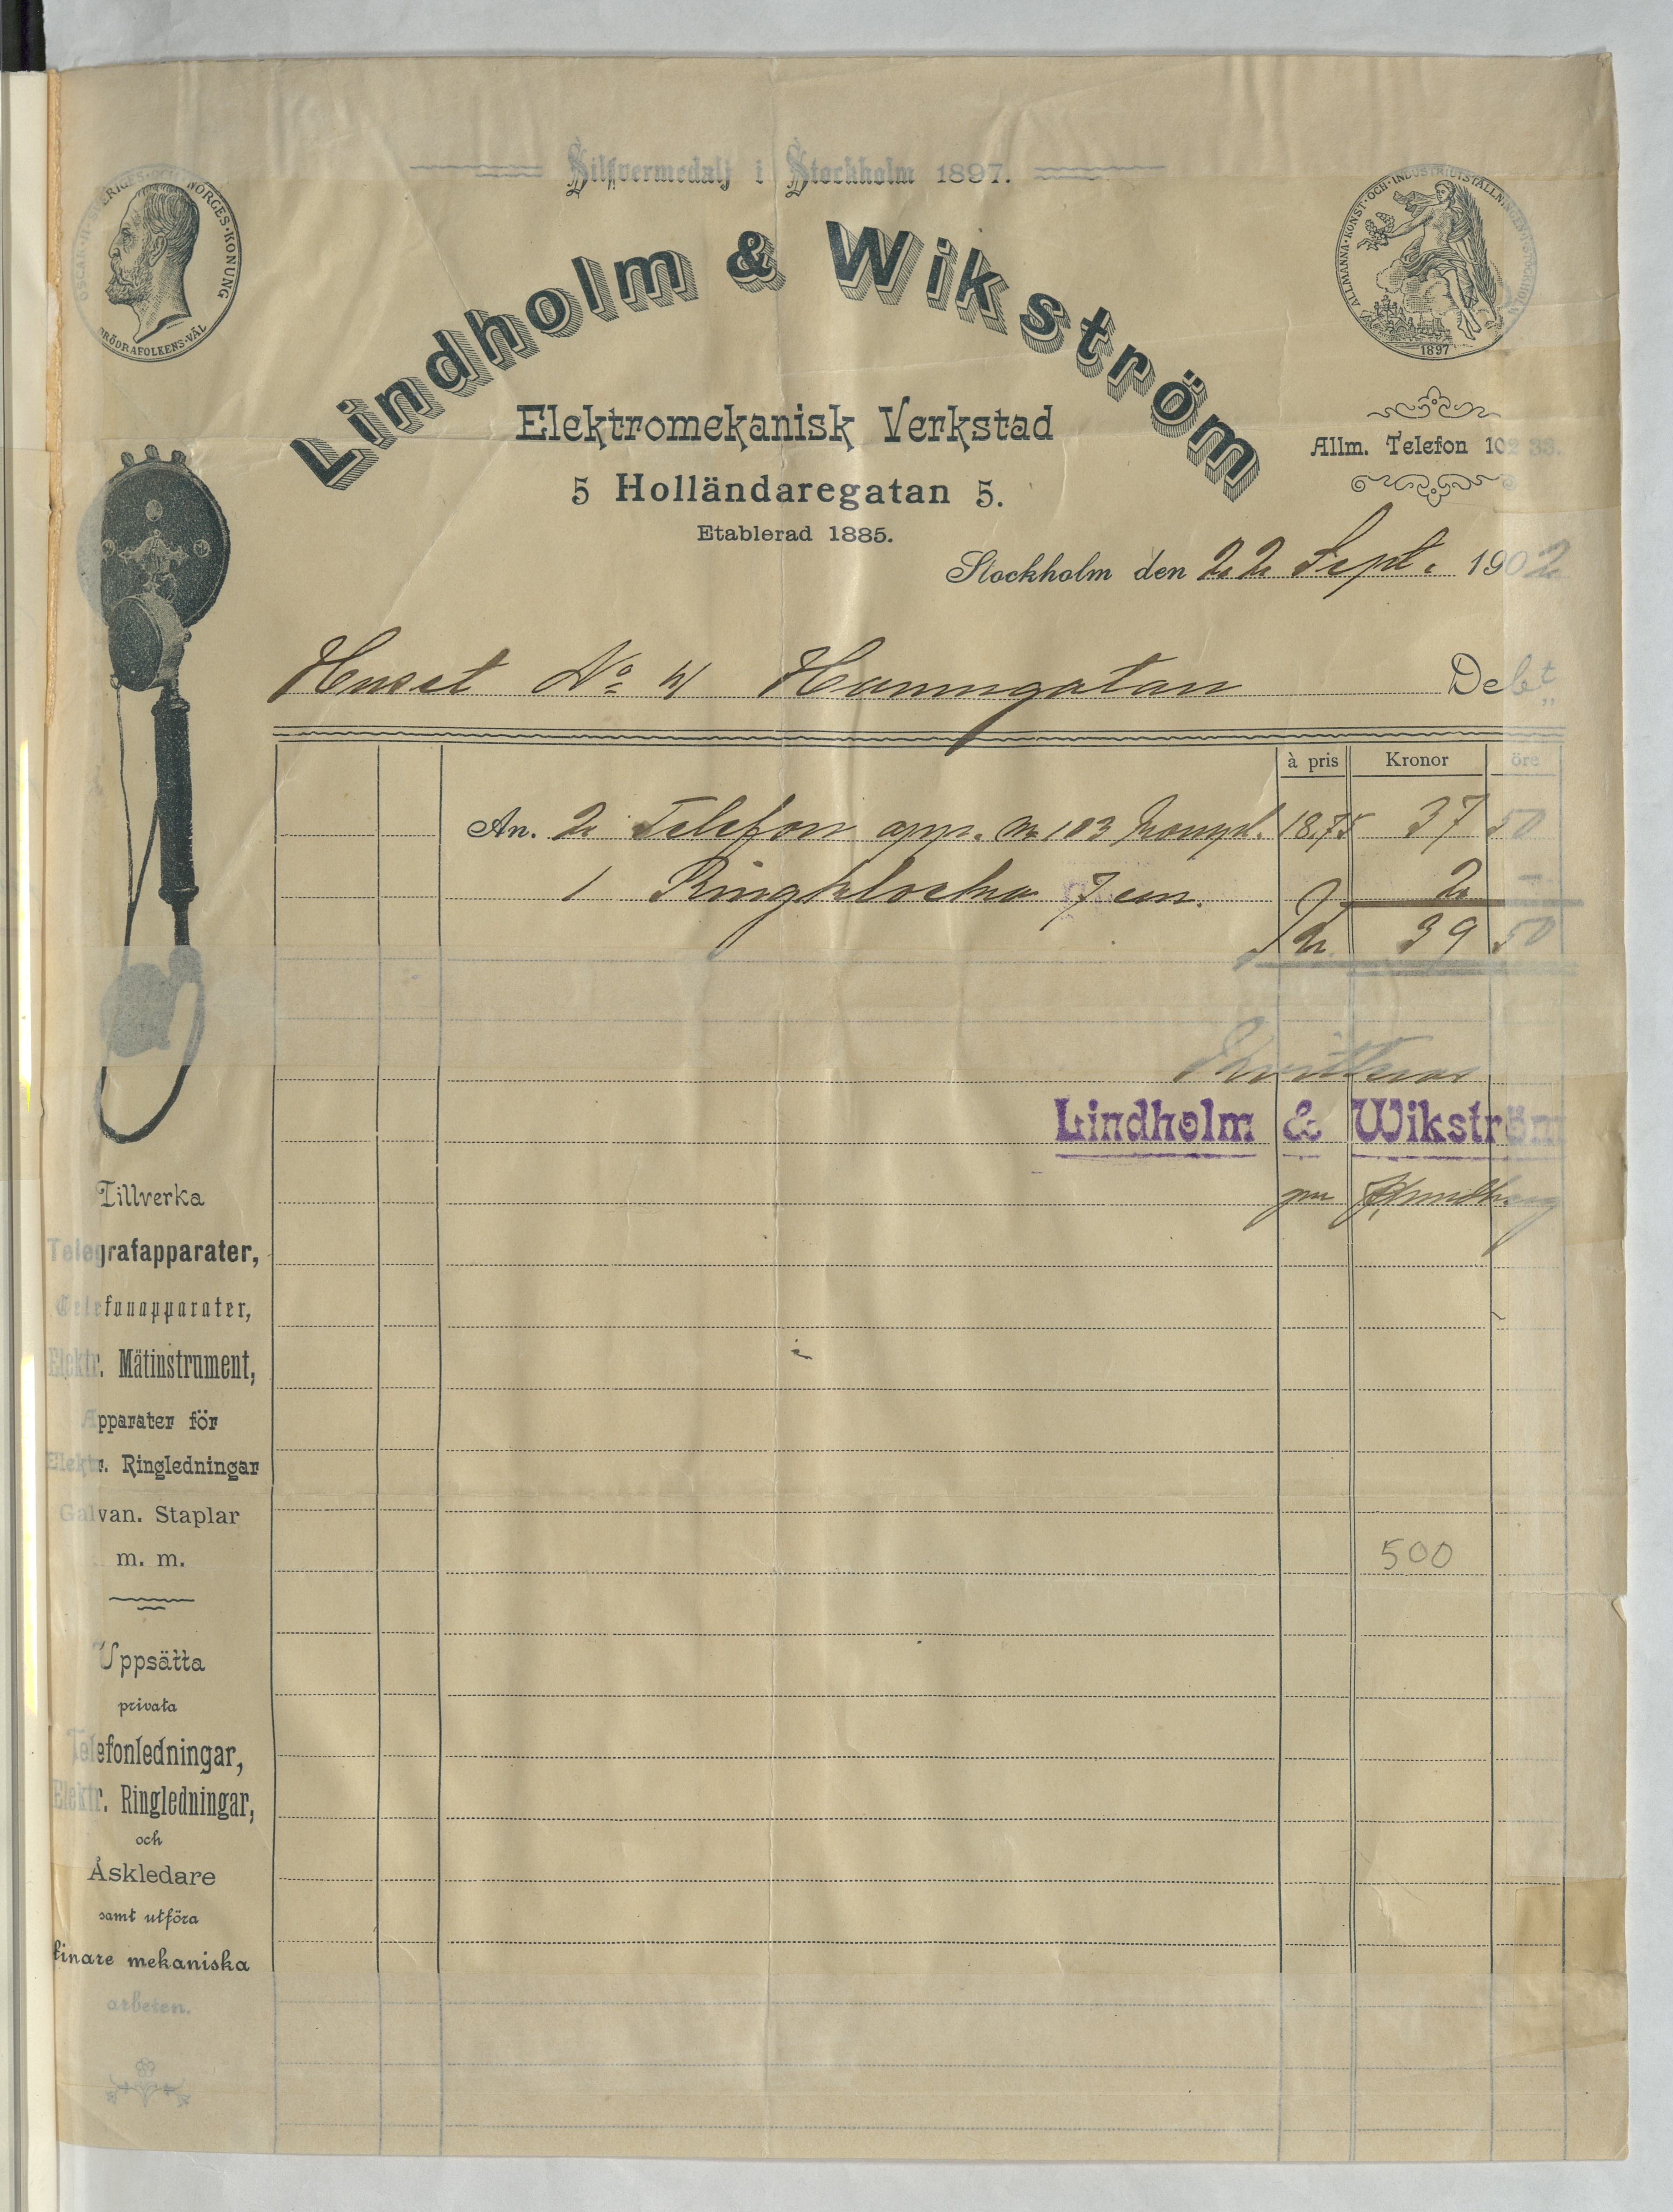 Silfvermedalj i Stockholm 1897.
OSCAR·II·SVERIGES·OCH·NORGES·KONUNG
BRÖDRAFOLKENS·VÄL
ALLMÄNNA·KONST·OCH·INDUSTRIUTSTÄLLNINGEN·STOCKHOLM
1897
Lindholm & Wikström
Elektromekanisk Verkstad
5 Holländaregatan 5.
Etablerad 1885.
Allm. Telefon 102 33.
Stockholm den 22 Sept. 1902
Huset No 4 Hamngatan Debet
à pris Kronor öre
An. 2 Telefon app. No 103 kompl. 18.75 37 50
1 Ringklocka 7 cm. 2 –
Kr. 39 50
Kvitteras
Lindholm & Wikström
500
Tillverka
Telegrafapparater,
Telefonapparater,
Elektr. Mätinstrument,
Apparater för
Elektr. Ringledningar
Galvan. Staplar
m. m.
Uppsätta
privata
Telefonledningar,
Elektr. Ringledningar,
och
Åskledare
samt utföra
finare mekaniska
arbeten.